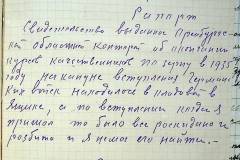 Рапорт
Свидетельство выданное Оренбургс-
кой областной конторой об окончании
курсов качественников по зерну в 1935
году накануне вступления Германс-
ких войск находилось в кладовой в
ящике, а по вступлении когда я
пришол то было все роскидано и
розбито и я немог его найти.